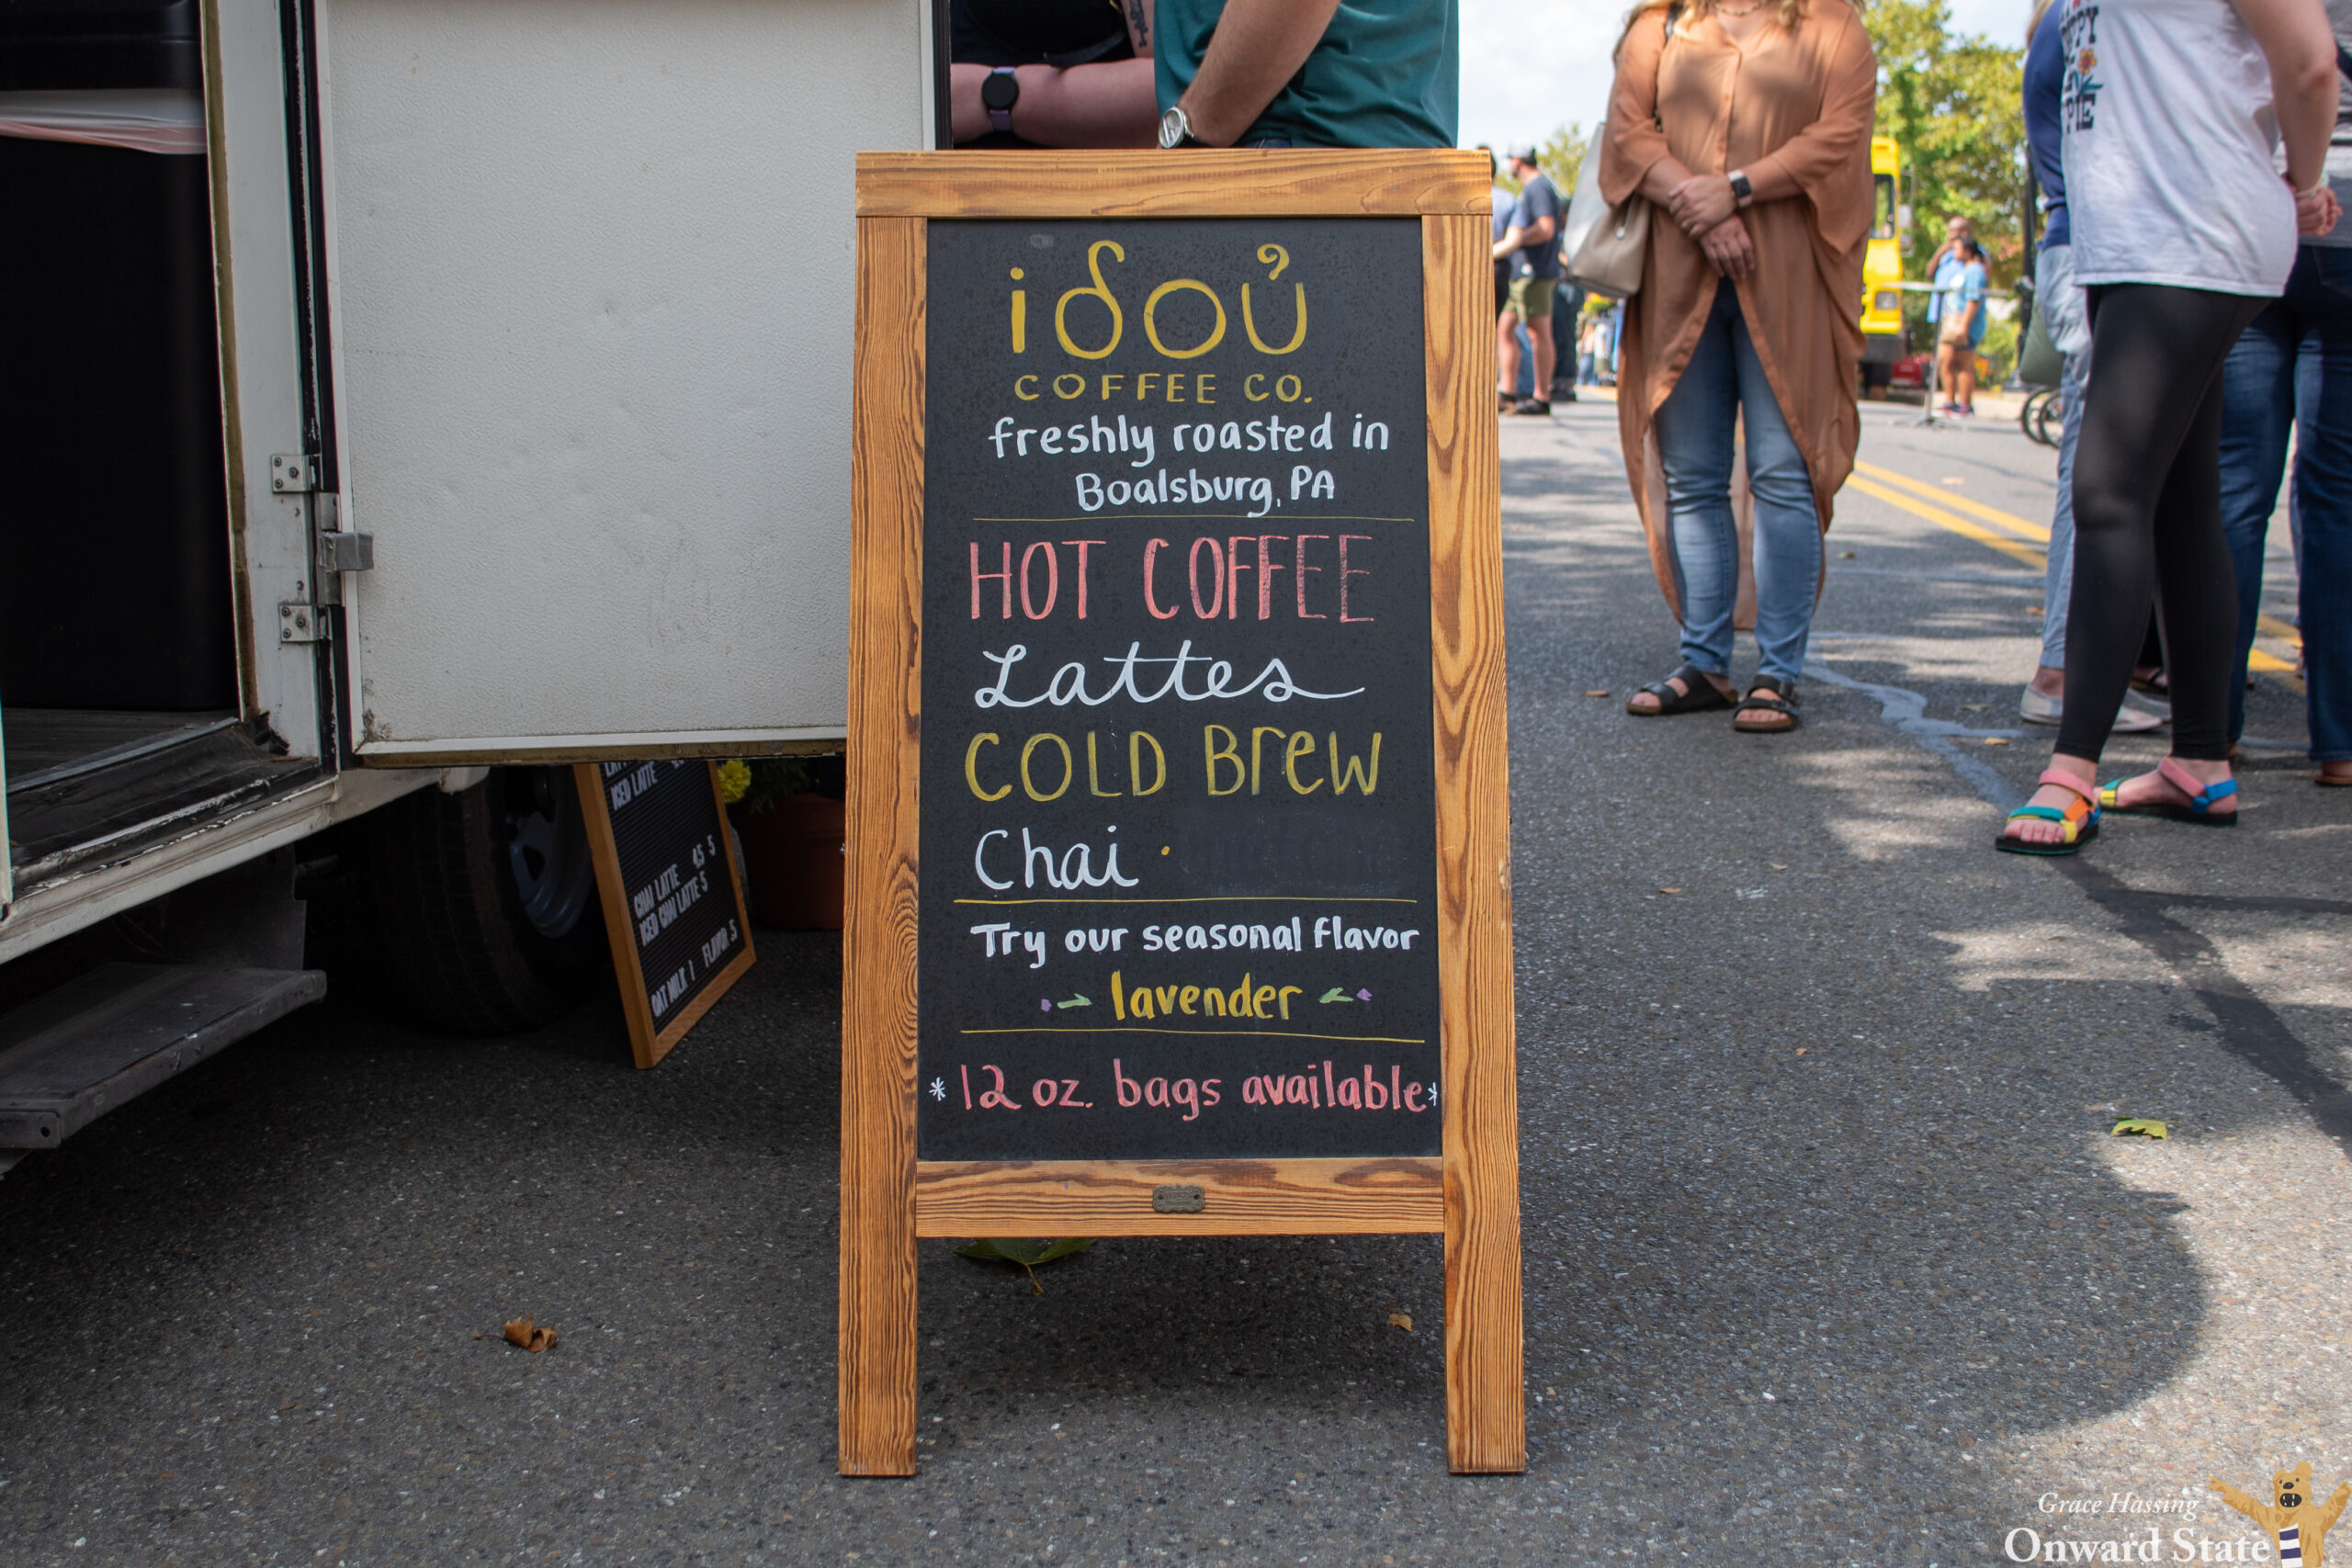 ιδού
COFFEE CO.
freshly roasted in
Boalsburg, PA
HOT COFFEE
Lattes
COLD Brew
Chai ·
Try our seasonal flavor
lavender
* 12 oz. bags available *
ICED LATTE
CHAI LATTE 4.5 5
ICED CHAI LATTE 5
OAT MILK 1 FLAVOR .5
Grace Hassing
Onward State